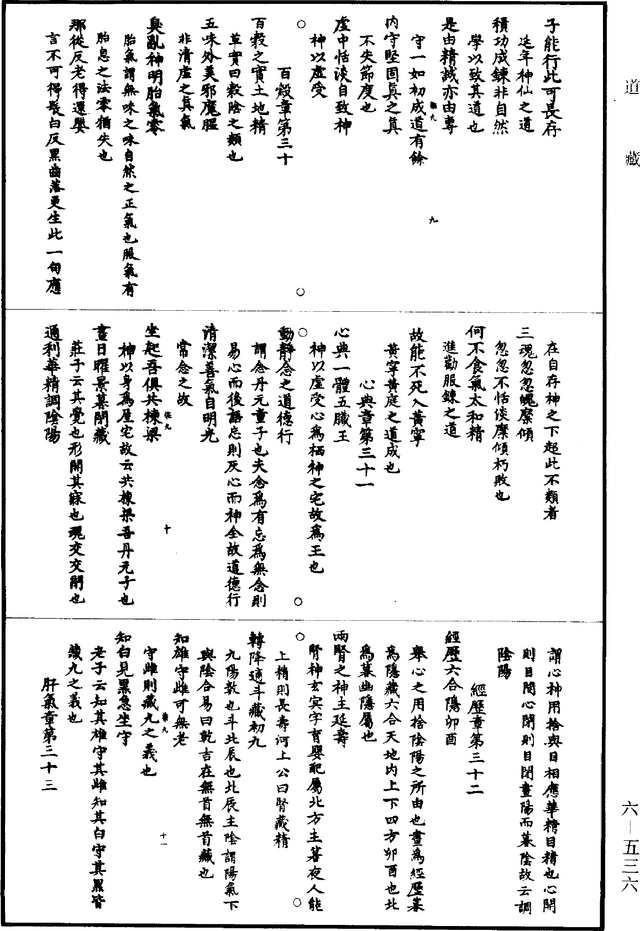 道藏
子能行此可長存
延年神仙之道
積功成鍊非自然
學以致其道也
是由精誠亦由專
守一如初成道有餘
內守堅固真之真
不失節度也
虛中恬淡自致神
神以虛受
百穀章第三十
百穀之實土地精
草實曰穀陰之類也
五味外美邪魔腥
非清虛之真氣
臭亂神明胎氣零
胎氣謂無味之味自然之正氣也服氣有
胎息之法零猶失也
那從反老得還嬰
言不可得髮白反黑齒落更生此一句應
在自存神之下超此不類者
三魂忽忽魄糜傾
忽忽不恬淡糜傾朽敗也
何不食氣太和精
進勸服鍊之道
故能不死入黃寧
黃寧黃庭之道成也
心典章第三十一
心典一體五臟王
神以虛受心為栖神之宅故為王也
動靜念之道德行
謂念丹元童子也夫念為有忘為無念則
易心而後語忘則灰心而神全故道德行
清潔善氣自明光
常念之故
坐起吾俱共棟梁
神以身為屋宅故云共棟梁吾丹元子也
晝日曜景暮閉藏
莊子云其覺也形開其寐也魂交交閉也
通利華精調陰陽
謂心神用捨與目相應華精目精也心開
則目開心閉則目閉晝陽而暮陰故云調
陰陽
經歷章第三十二
經歷六合隱卯酉
舉心之用捨陰陽之所由也晝為經歷暮
為隱藏六合天地內上下四方卯酉也北
為暮幽隱屬也
兩腎之神主延壽
腎神玄冥字育嬰配屬北方主暮夜人能
上精則長壽河上公曰腎藏精
轉降適斗藏初九
九陽數也斗北辰也北辰主陰謂陽氣下
與陰合易曰乾吉在無首無首藏也
知雄守雌可無老
守雌則藏九之義也
知白見黑急坐守
老子云知其雄守其雌知其白守其黑皆
藏九之義也
肝氣章第三十三
六－五三六